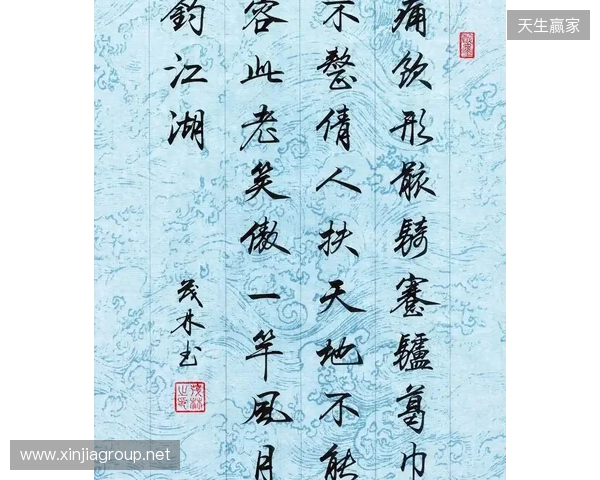 痛飲形骸騎蹇驢葛巾
不整倩人扶天地不能
容此老笑傲一竿風月
釣江湖
茂林书
天生赢家
www.xinjiagroup.net